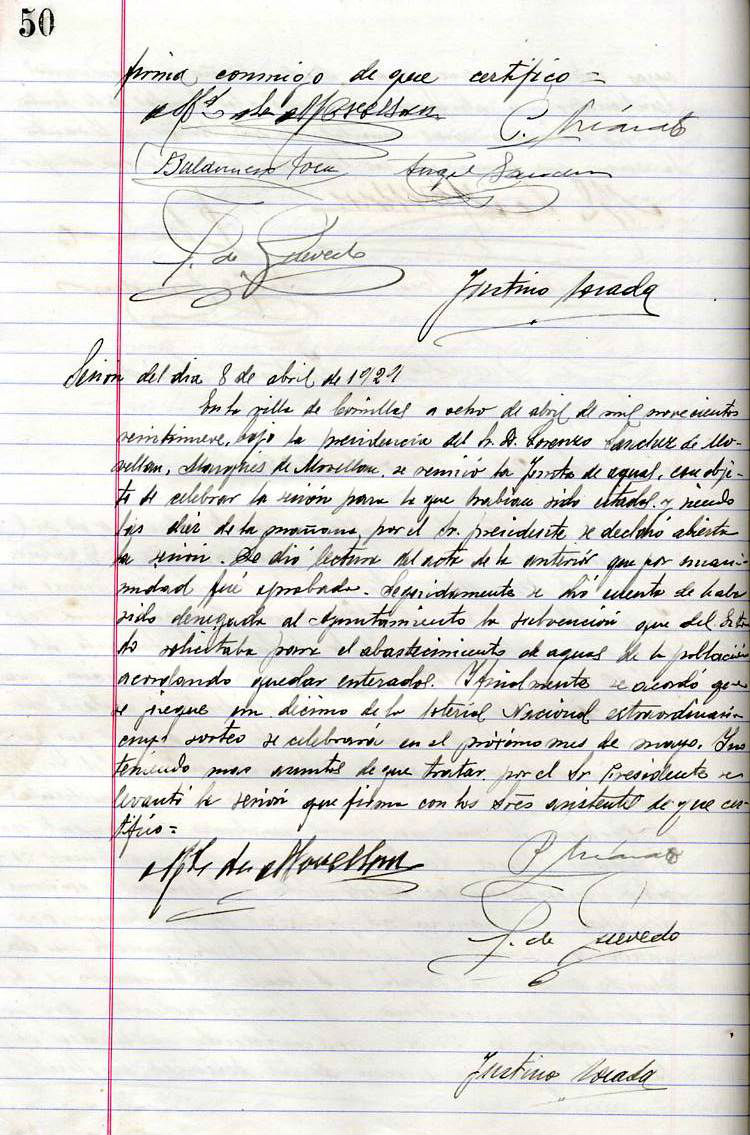 50
firma conmigo de que certifico =
M.qs de Movellan
Baldomero Angel
P. de Quevedo
Justino
Sesión del dia 8 de abril de 1929
En la villa de Comillas a ocho de abril de mil novecientos
veintinueve, bajo la presidencia del Sr. D. Lorenzo Sanchez de Mo-
vellan, Marqués de Movellan, se reunió la Junta de aguas, con obje-
to de celebrar la sesión para la que habian sido citados y siendo
las diez de la mañana, por el Sr. presidente se declaró abierta
la sesión. Se dió lectura del acta de la anterior que por unani-
midad fué aprobada. Seguidamente se dió cuenta de haber
sido denegada al Ayuntamiento la subvención que del Esta-
do solicitaba para el abastecimiento de aguas de la población
acordando quedar enterados. Finalmente se acordó que
se juegue un décimo de la loteria Nacional extraordinaria
cuyo sorteo se celebrará en el próximo mes de mayo. Y no
teniendo mas asuntos de que tratar por el Sr Presidente se
levantó la sesión que firma con los Sres asistentes de que cer-
tifico =
M.qs de Movellan
P. de Quevedo
Justino